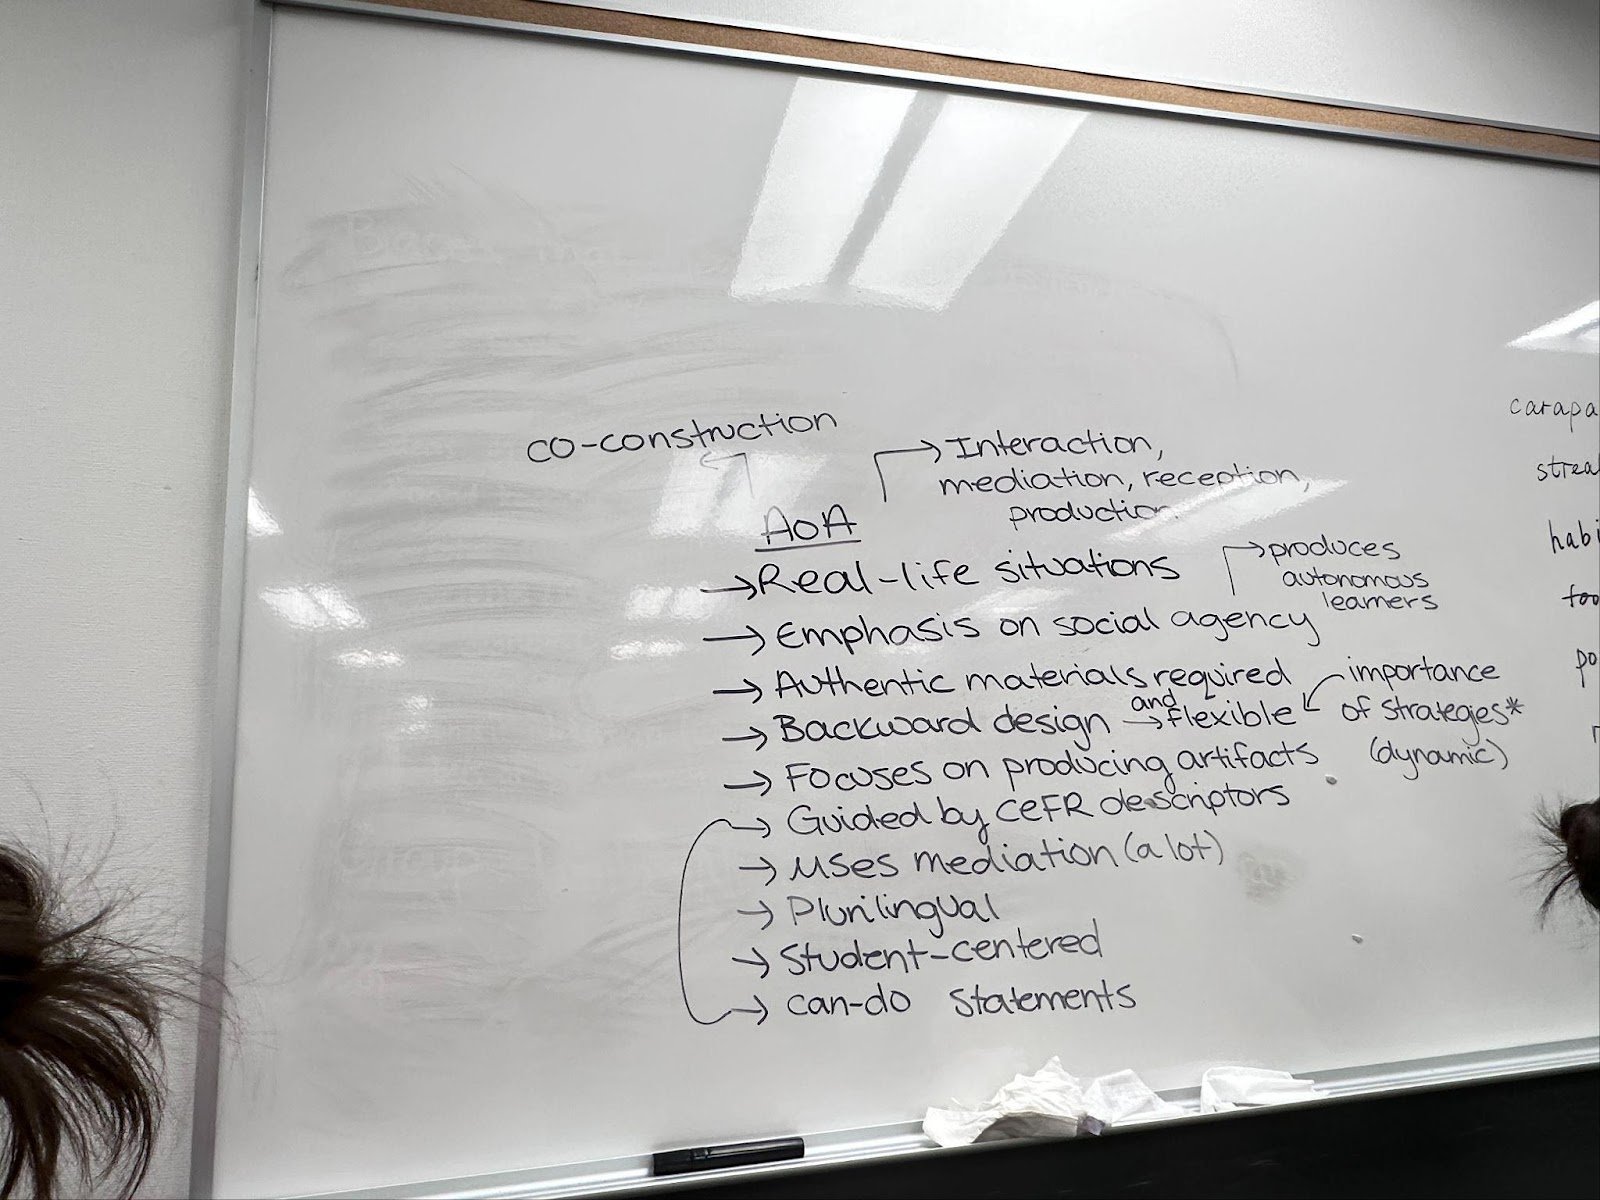 co-construction
Interaction,
mediation, reception,
production.
AOA
→Real-life situations
→produces
autonomous
learners
→ Emphasis on social agency
→ Authentic materials required
importance
of strategies*
(dynamic)
→ Backward design and → flexible
→ Focuses on producing artifacts
→ Guided by CEFR descriptors
→ uses mediation (a lot)
→ Plurilingual
→ Student-centered
→ can-do statements
carapa
strea
habi
foo
po